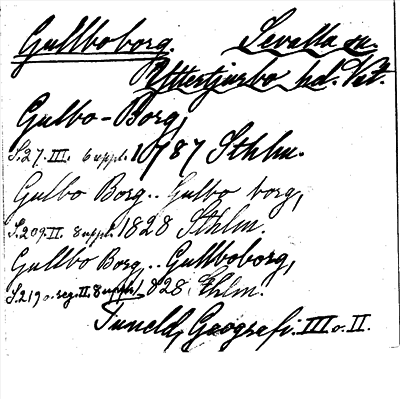 Gullboborg. Sevalla sn.
Yttertjurbo hd. Vst.
Gulbo-Borg,
S. 27. III. 6 uppl. 1787 Sthlm.
Gulbo Borg.. Gulbo borg,
S. 209. II. 8 uppl. 1828 Sthlm.
Gullbo Borg.. Gullboborg,
S. 219 o. reg. II. 8 uppl. 1828 Sthlm.
Tuneld, Geografi. III o. II.